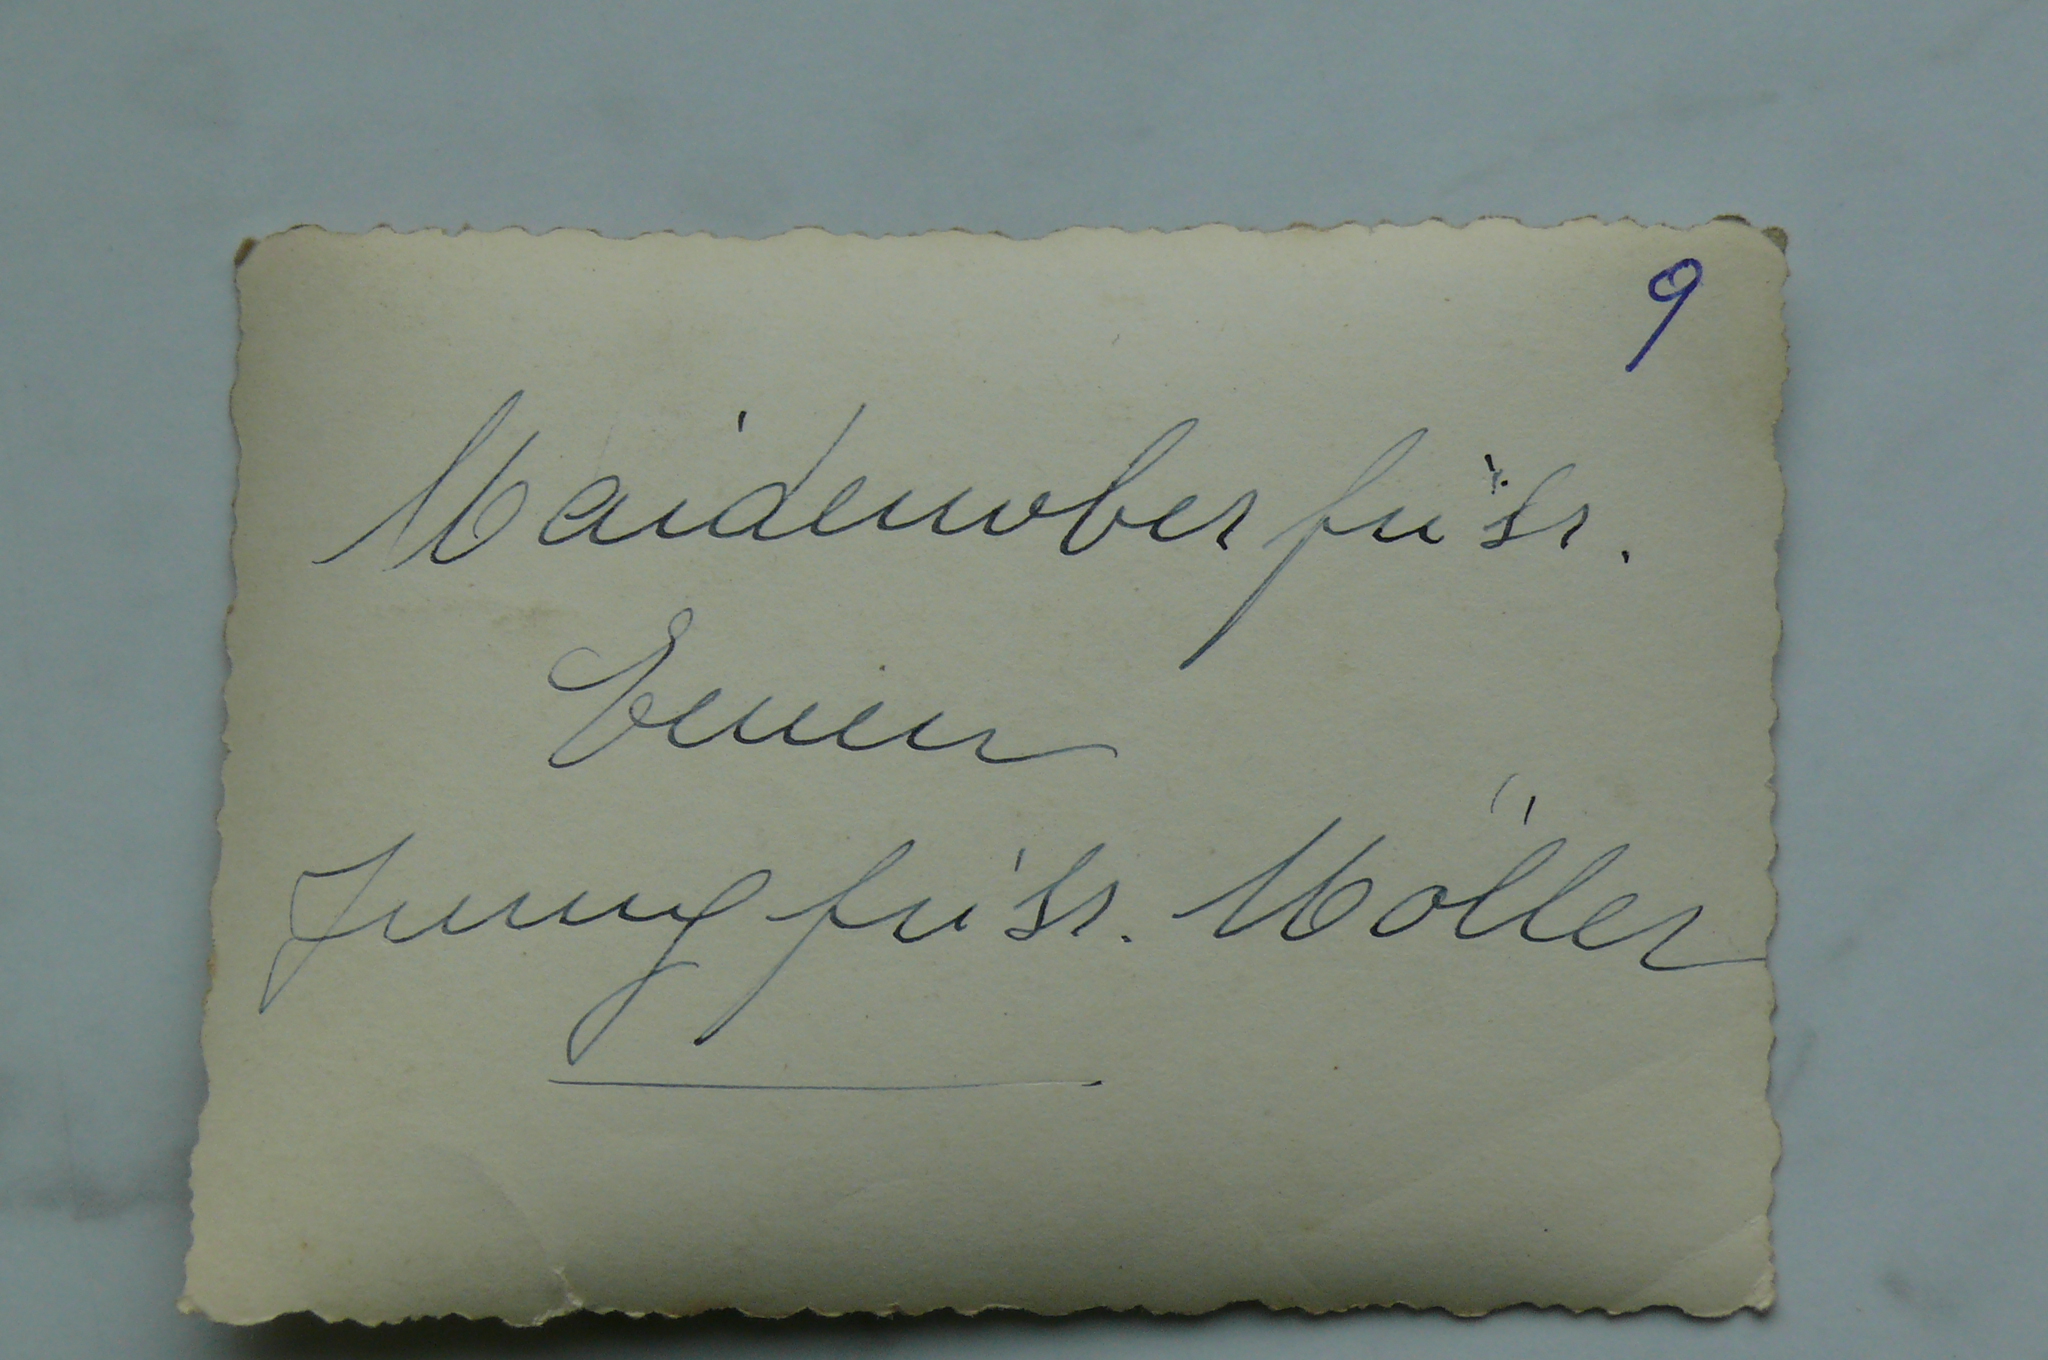 9
Maidenoberführ.
Jungführ. Möller